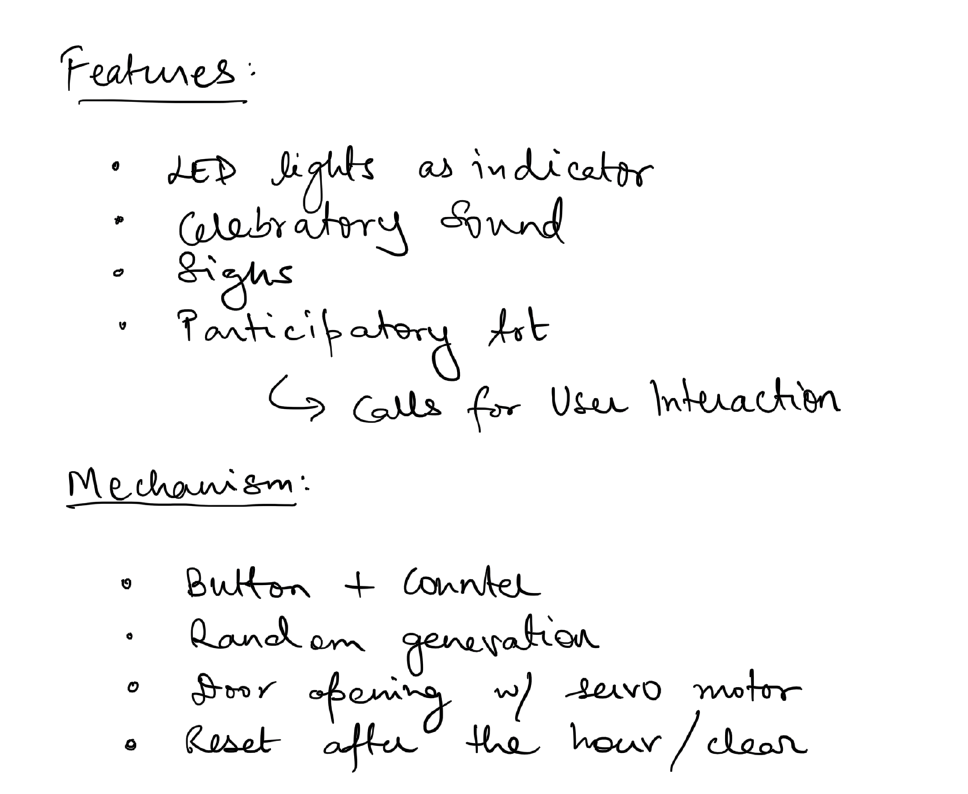 Features:
• LED lights as indicator
• Celebratory Sound
• Signs
• Participatory Art
↳ Calls for User Interaction
Mechanism:
• Button + Counter
• Random generation
• Door opening w/ servo motor
• Reset after the hour / clear